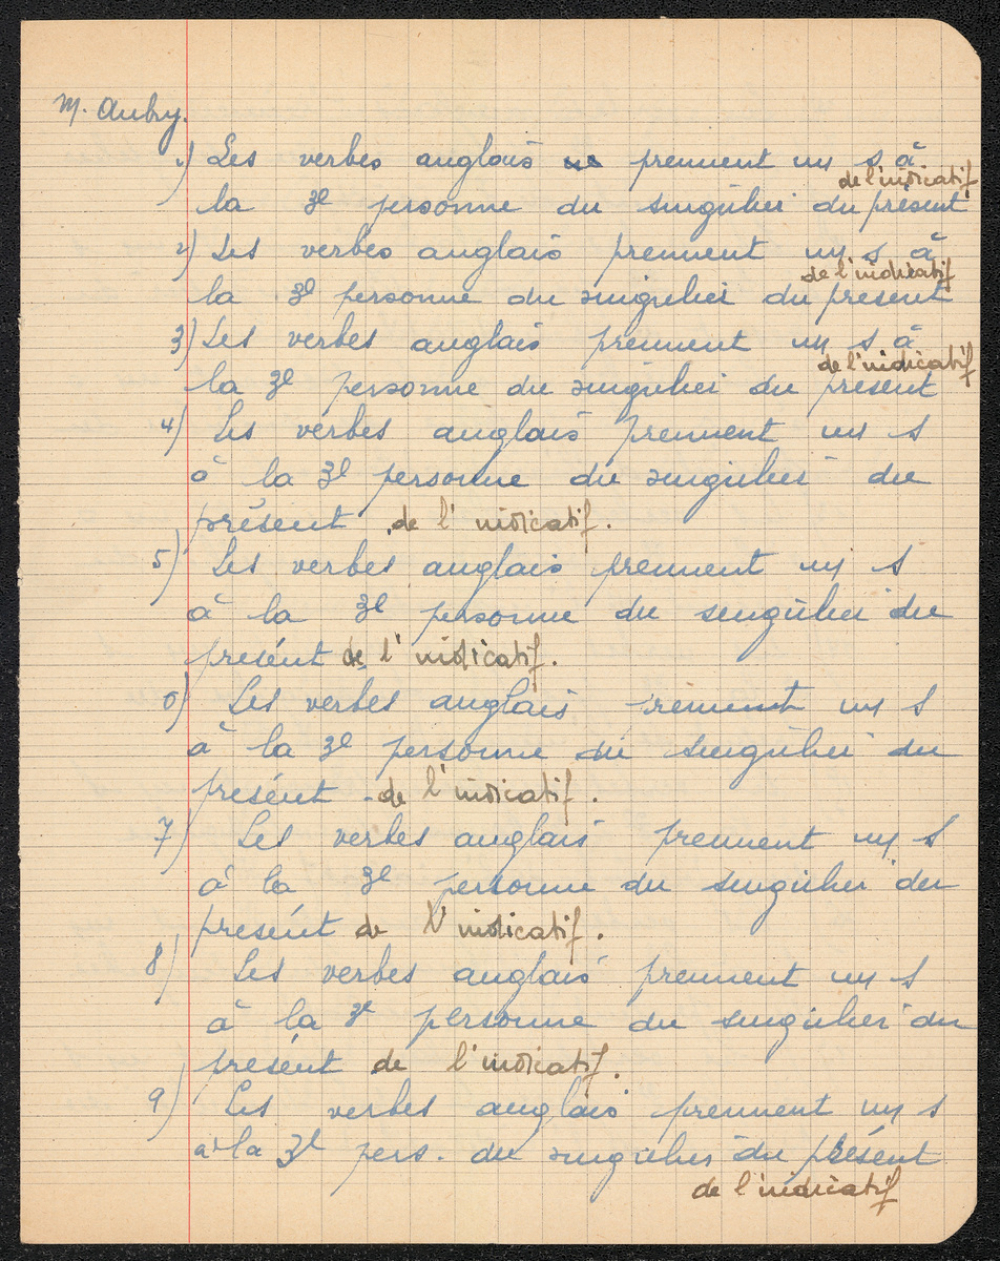 M. Aubry.
1) Les verbes anglais prennent un s à
de l'indicatif
la 3e personne du singulier du présent
2) Les verbes anglais prennent un s à
de l'indicatif
la 3e personne du singulier du présent
3) Les verbes anglais prennent un s à
de l'indicatif
la 3e personne du singulier du présent
4) Les verbes anglais prennent un s
à la 3e personne du singulier du
présent de l'indicatif.
5) Les verbes anglais prennent un s
à la 3e personne du singulier du
présent de l'indicatif.
6) Les verbes anglais prennent un s
à la 3e personne du singulier du
présent de l'indicatif.
7) Les verbes anglais prennent un s
à la 3e personne du singulier du
présent de l'indicatif.
8) Les verbes anglais prennent un s
à la 3e personne du singulier du
présent de l'indicatif.
9) Les verbes anglais prennent un s
à la 3e pers. du singulier du présent
de l'indicatif